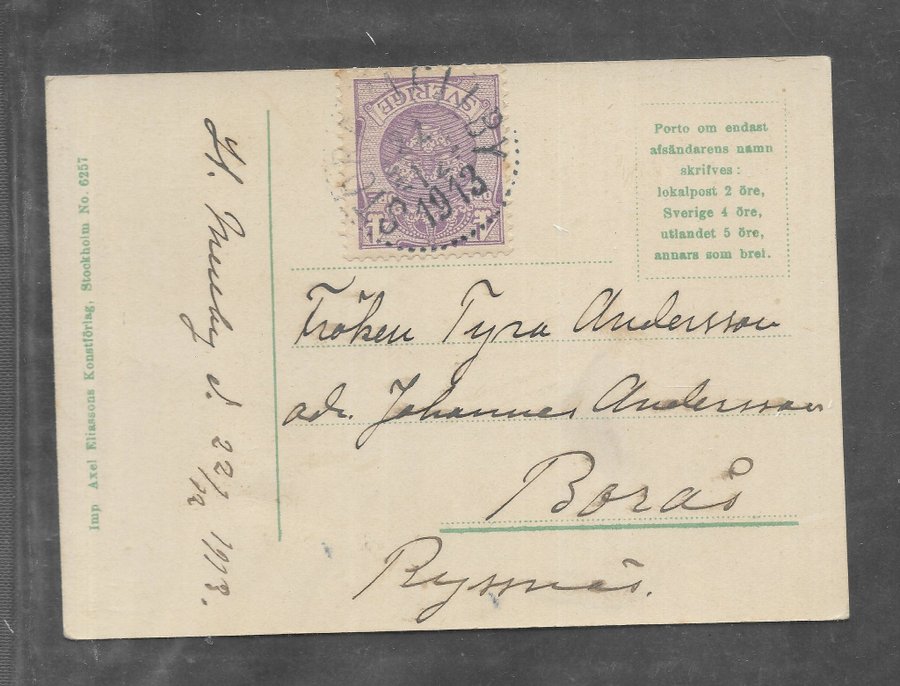 Imp Axel Eliassons Konstförlag, Stockholm No. 6257
d. 22/12 1913.
SVERIGE
1913
Porto om endast
afsändarens namn
skrifves:
lokalpost 2 öre,
Sverige 4 öre,
utlandet 5 öre,
annars som bref.
Fröken Tyra Andersson
adr. Johannes Andersson
Borås
Ryssnäs.